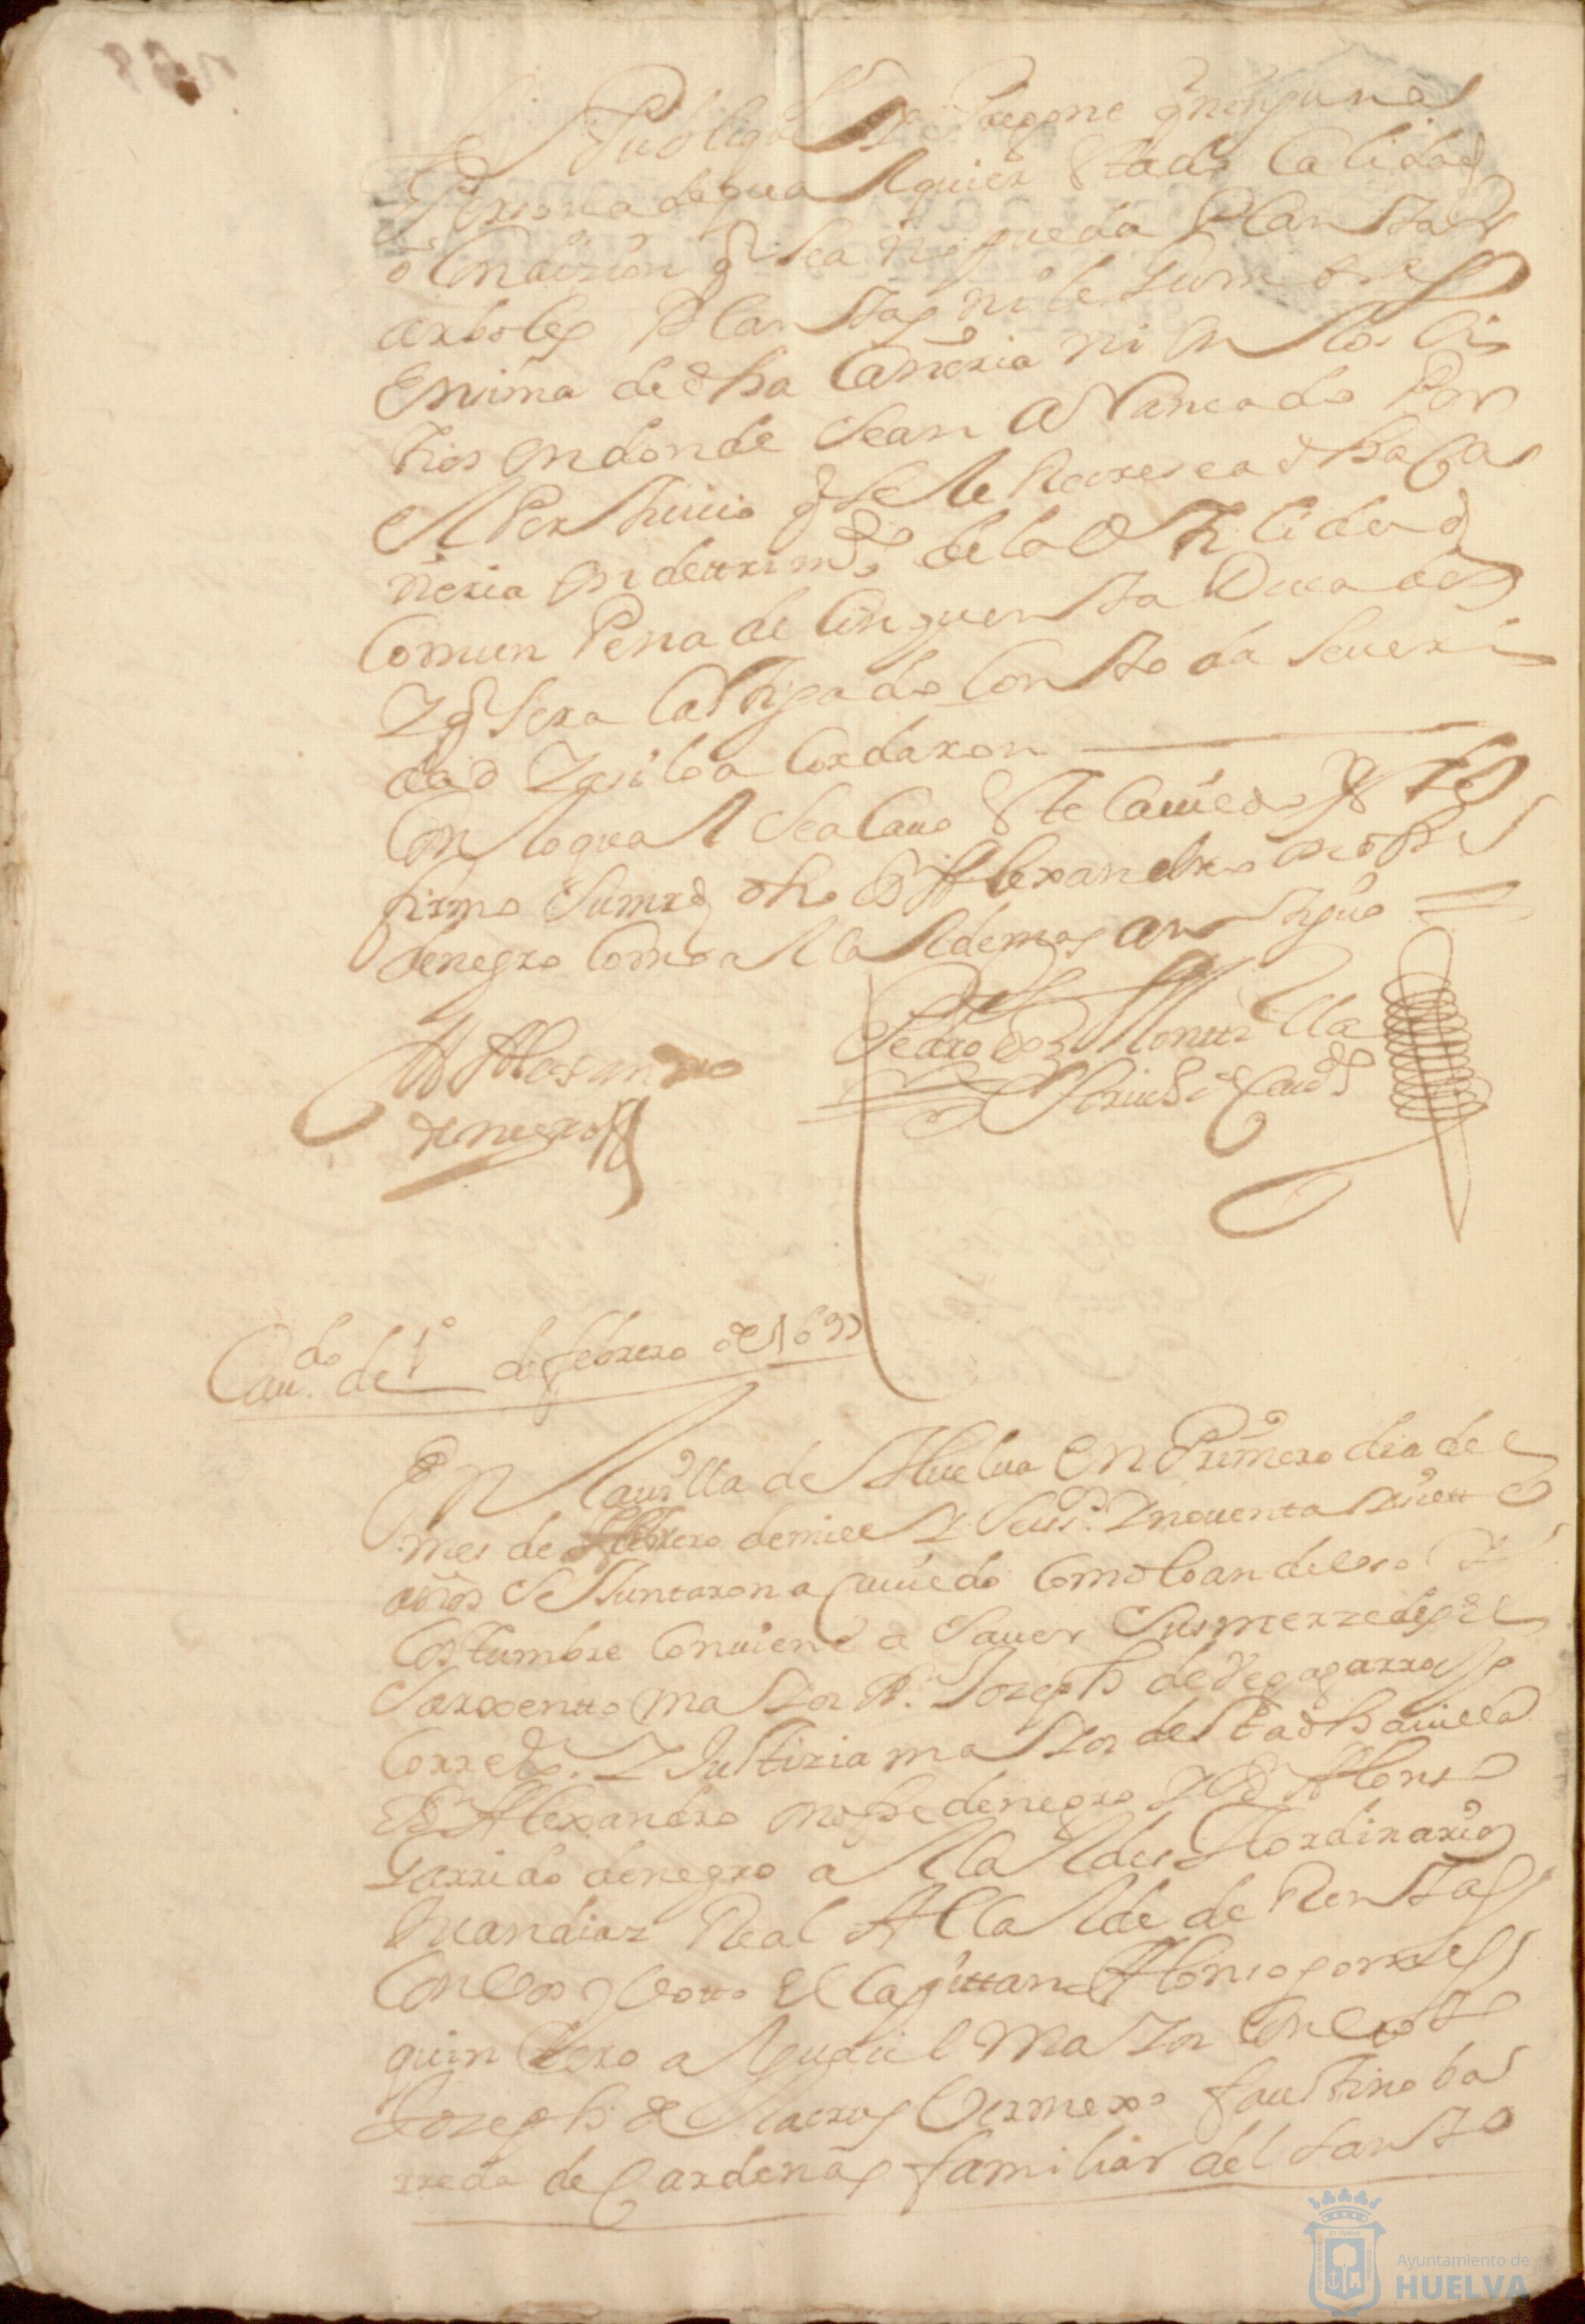 Publiq Se Pregone q ninguna
Persona de qual quier Stado Calidad
o Condizion q Sea no pueda Plantar
arboles Plantas ni legumbres
Ensima de dha Cañeria ni en los si
tios en donde Sean a Rancado Por
el Perjuicio q Se le Recrese a dha Ca
ñeria en detrimto de la Vtilidad
Comun Pena de Cinquenta Ducados
Y q Sera Castigado Con toda Seueri
dad Y asi lo a Cordaron
Con lo qual Se a Cauo Este Cauildo Y lo
firmo Sumrd dho D Alexandro onofre
denegro Como al Calde mas antiguo
D Alexandro
denegro
Pedro de Montilla
Scriuo de Caudo
Cauo de 1o de febrero de 1699
En la uilla de Huelua En Primero dia de
mes de febrero de mill Y Seis Y nouenta Y nueue
años Se Juntaron a Cauildo Como lo an de Vso Y
Costumbre Conuiene a Sauer Sus merzedes el
Sarxento maior Dn Joseph de Vegagarrocho
Corredor Y Justizia maior de Sta dha uilla
D Alexandro onofre denegro Y D Alonso
Garrido denegro al Caldes Hordinarios
Juan diaz Real Al Calde de Rentas
Con Vos Y Voto El Capittan Alonso gomes
quintero al guazil Maior Con Voto
Joseph de la Crus Vermexo faustino ba
rreda de Cardenas familiar del Santo
Ayuntamiento de
HUELVA